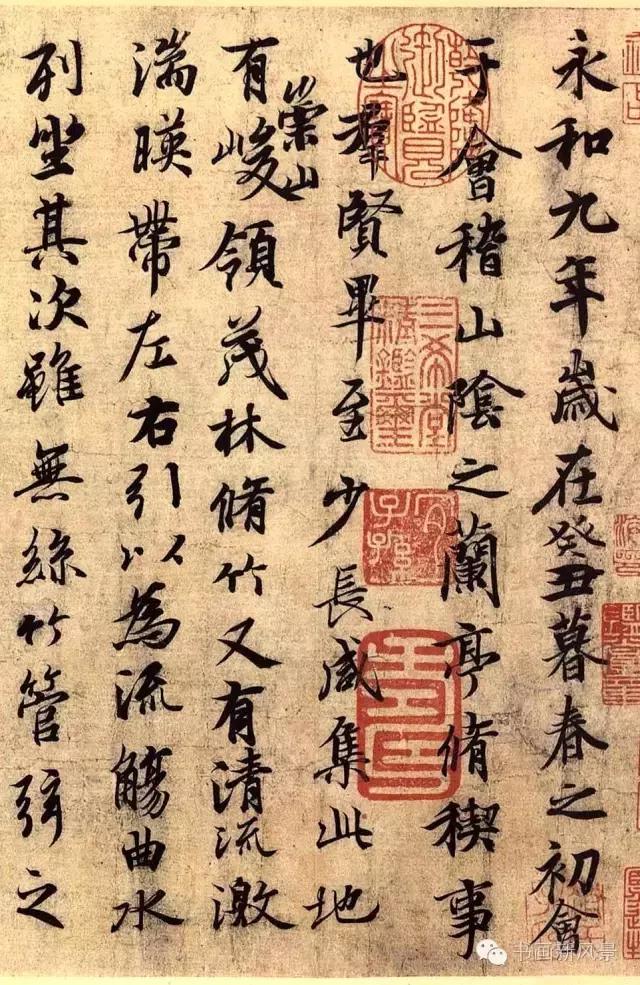 永和九年歲在癸丑暮春之初會
于會稽山陰之蘭亭脩稧事
也羣賢畢至少長咸集此地
有崇山峻領茂林脩竹又有清流激
湍暎帶左右引以為流觴曲水
列坐其次雖無絲竹管弦之
乾隆御覽之寶
三希堂精鑑璽
宜子孫
书画新风景